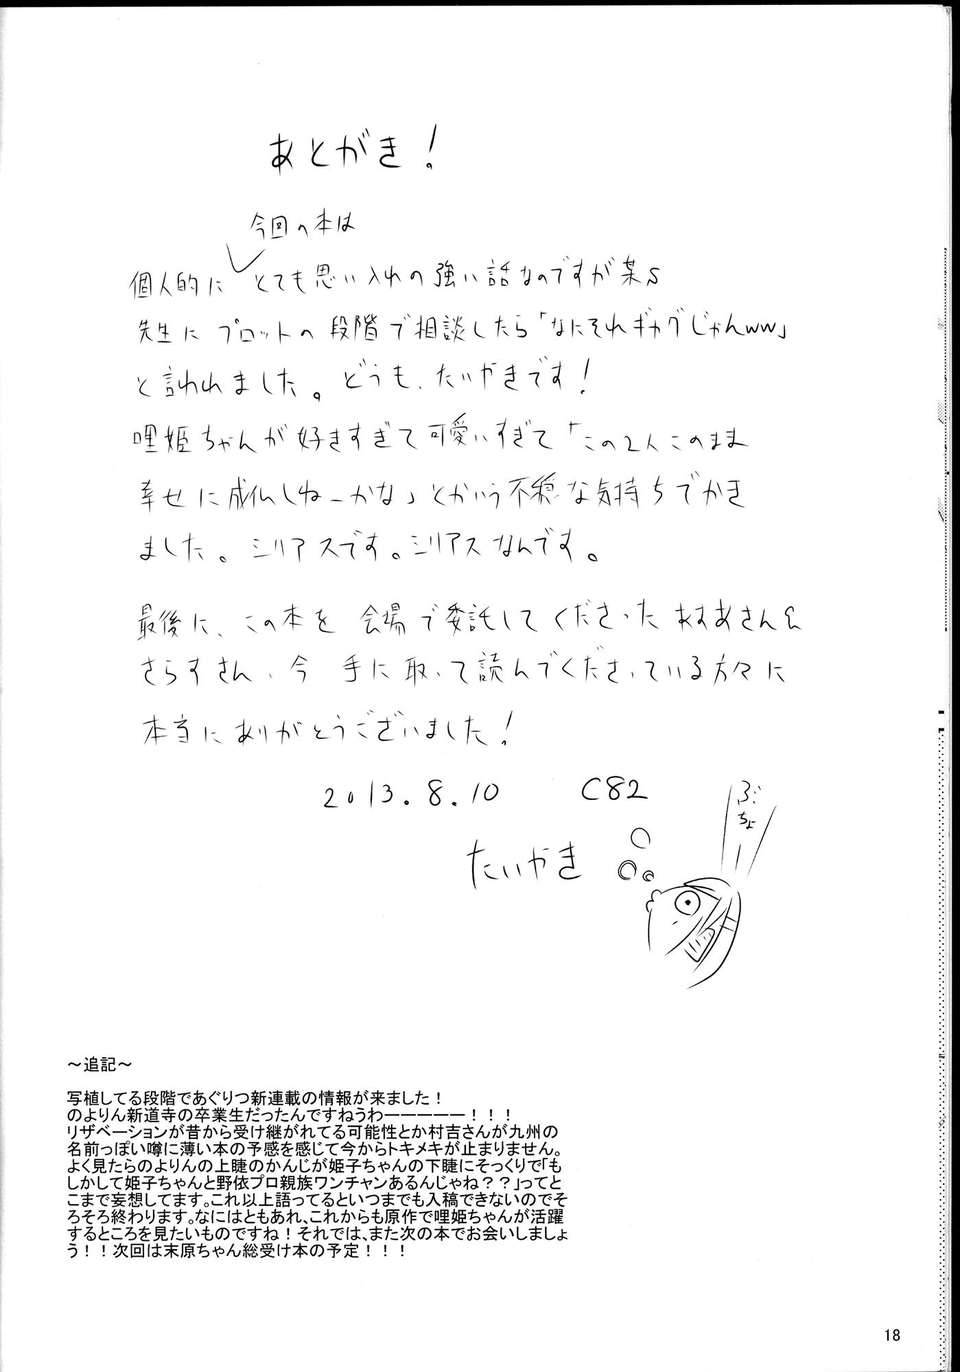 あとがき!
今回の本は
個人的に とても思い入れの強い話なのですが某S
先生に プロットの段階で相談したら「なにそれギャグじゃんww」
と言われました。どうも、たいやきです!
哩姫ちゃんが好きすぎて可愛いすぎて「この2人このまま
幸せに成仏しねーかな」とかいう不穏な気持ちでかき
ました。シリアスです。シリアスなんです。
最後に、この本を 会場で委託してくださった あすあさん&
さらすさん、今 手に取って読んでくださっている方々に
本当にありがとうございました!
2013.8.10 C82
ぶちょー
たいやき
～追記～
写植してる段階であぐりつ新連載の情報が来ました！
のよりん新道寺の卒業生だったんですねうわーーーーー！！！
リザベーションが昔から受け継がれてる可能性とか村吉さんが九州の
名前っぽい噂に薄い本の予感を感じて今からトキメキが止まりません。
よく見たらのよりんの上睫のかんじが姫子ちゃんの下睫にそっくりで「も
しかして姫子ちゃんと野依プロ親族ワンチャンあるんじゃね？？」ってと
こまで妄想してます。これ以上語ってるといつまでも入稿できないのでそ
ろそろ終わります。なにはともあれ、これからも原作で哩姫ちゃんが活躍
するところを見たいものですね！それでは、また次の本でお会いしましょ
う！！次回は末原ちゃん総受け本の予定！！！
18